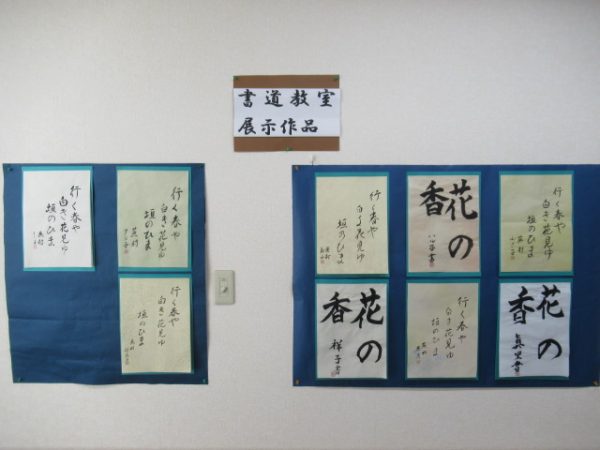 書道教室
展示作品
行く春や
白き花見ゆ
垣のひま
蕪村
行く春や
白き花見ゆ
垣のひま
蕪村
行く春や
白き花見ゆ
垣のひま
蕪村
行く春や
白き花見ゆ
垣のひま
蕪村
花の
香
行く春や
白き花見ゆ
垣のひま
蕪村
花の
香
祥子書
行く春や
白き花見ゆ
垣のひま
蕪村
花の
香